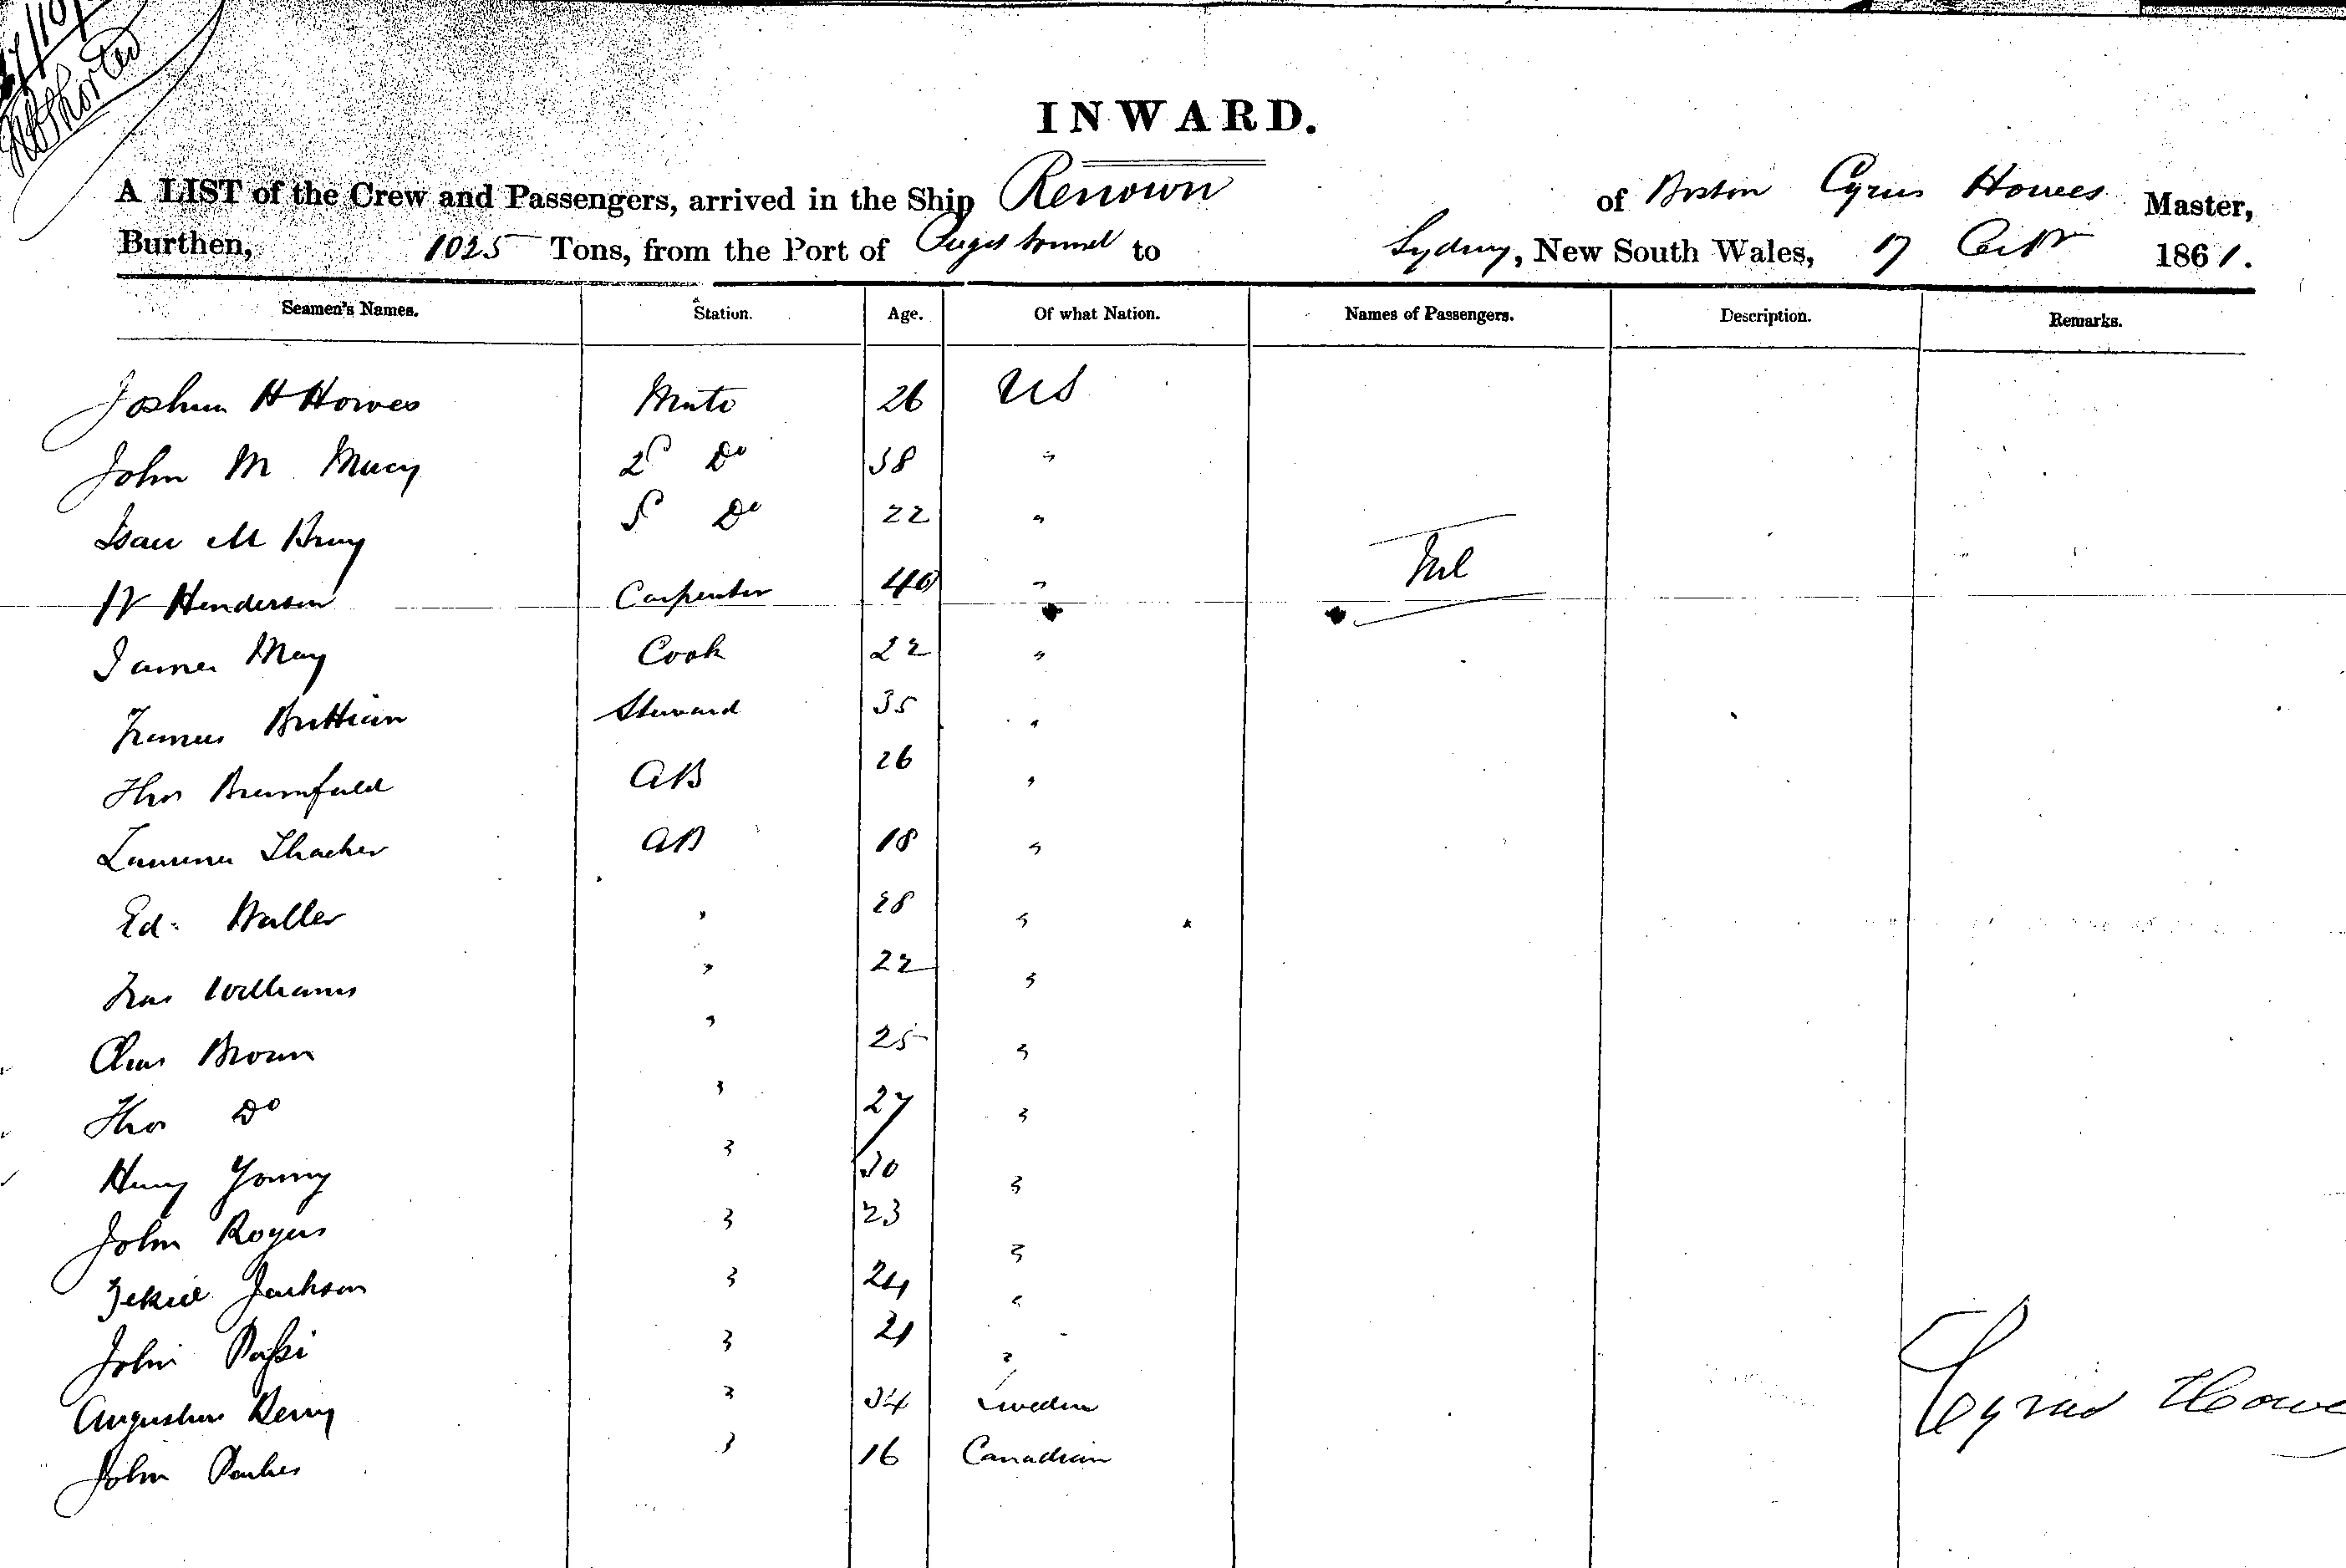 INWARD.
A LIST of the Crew and Passengers, arrived in the Ship Renown of Boston Cyrus Howes Master,
Burthen, 1025 Tons, from the Port of Puget Sound to Sydney, New South Wales, 17 Octr 1861.
Seamen's Names. Station. Age. Of what Nation. Names of Passengers. Description. Remarks.
Joshua H Howes Mate 26 US
John M Macy 2d Do 38 "
Isaac M Bray 3d Do 22 "
Nil
W Henderson Carpenter 40 "
James May Cook 22 "
Francis Steward 35 "
Thos Brumfield AB 26 "
Laurence Thacher AB 18 "
Ed. Waller " 28 "
Fras Williams " 22 "
Chas Brown " 25 "
Thos Do " 27 "
Henry Young " 30 "
John Rogers " 23 "
Jackson " 24 "
John " 21 "
Augustus Berry " 34 Sweden
John Parkes " 16 Canadian
Cyrus Howes